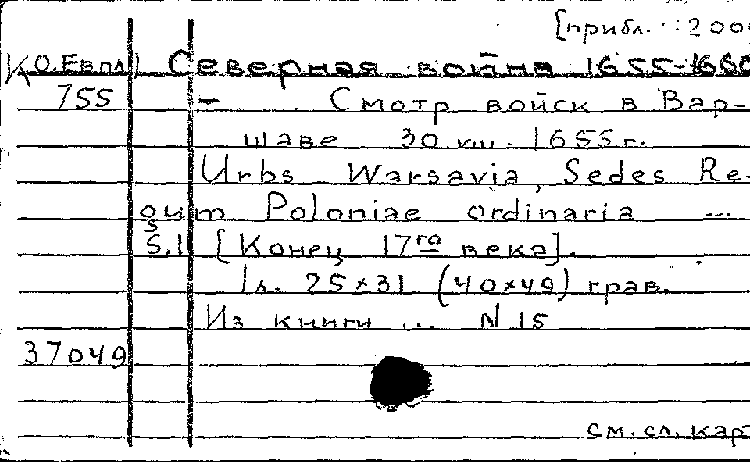 [прибл. : 200
К О.Евпл) Северная война 1655-1660
755 – Смотр войск в Вар-
шаве 30 VIII. 1655 г.
Urbs Warsavia, Sedes Re-
gum Poloniae ordinaria ...
S.l [Конец 17го века].
1 л. 25×31 (40×49) грав.
Из книги ... N 15
37049
см. сл. кар